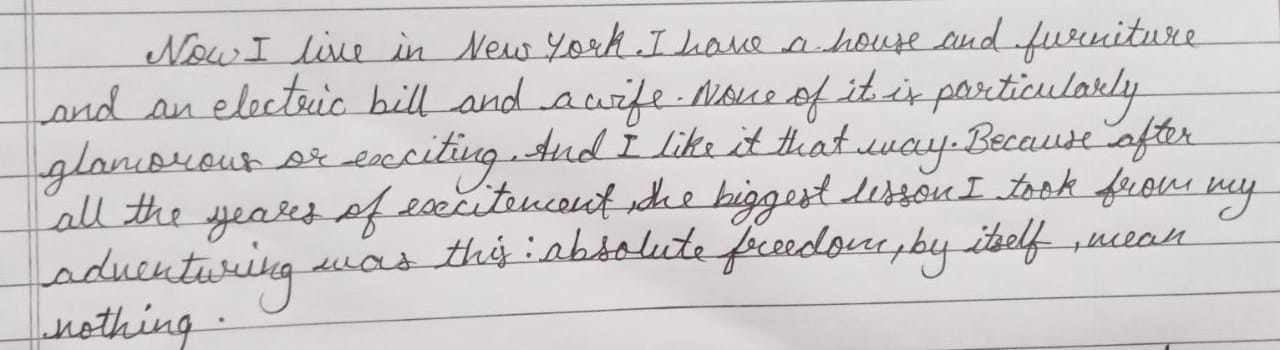 Now I live in New York. I have a house and furniture
and an electric bill and a wife. None of it is particularly
glamorous or exciting. And I like it that way. Because after
all the years of excitement, the biggest lesson I took from my
adventuring was this: absolute freedom, by itself, mean
nothing.